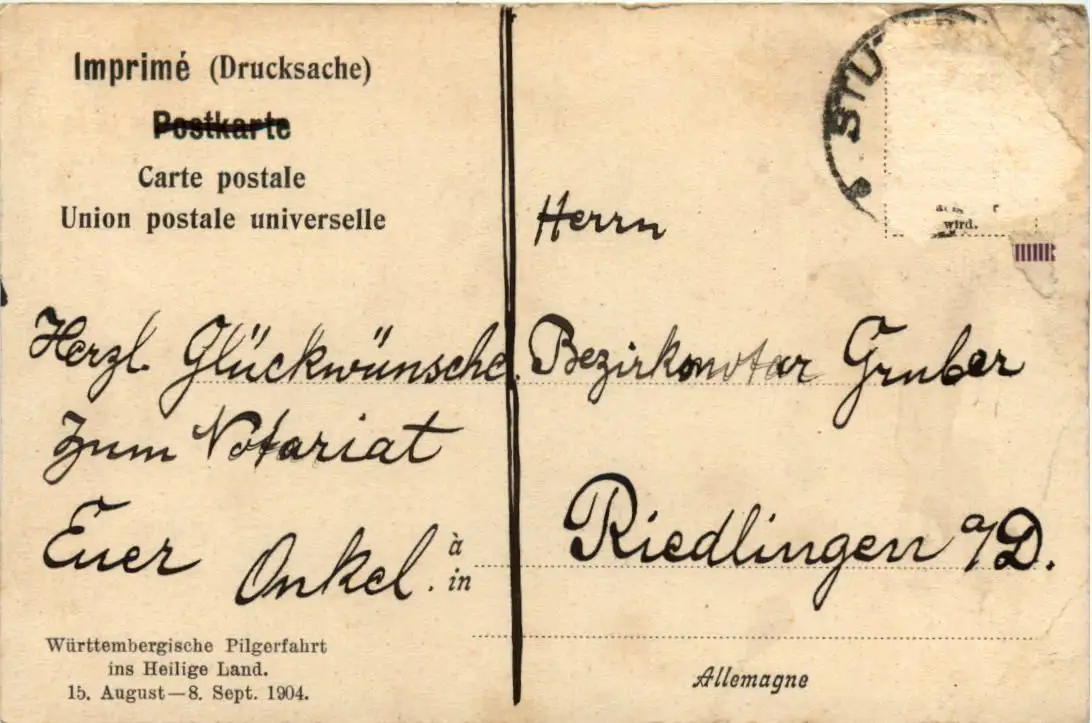 Imprimé (Drucksache)
Postkarte
Carte postale
Union postale universelle
Herzl. Glückwünsche
zum Notariat
Euer Onkel.
à
in
Württembergische Pilgerfahrt
ins Heilige Land.
15. August—8. Sept. 1904.
STU
wird.
Herrn
Bezirksnotar Gruber
Riedlingen a/D.
Allemagne